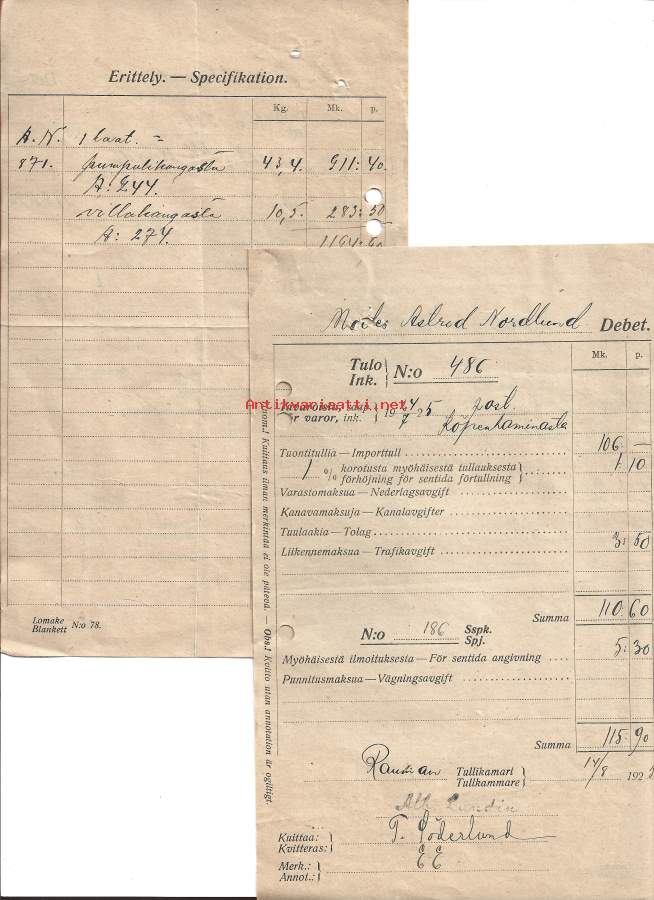 Erittely. — Specifikation.
Kg. Mk. p.
A. N. 1 laat. =
871. pumpulikangasta 43,4. 911: 40.
A: 244.
villakangasta 10,5. 283: 50
A: 274.
1194: 90
Lomake
Blankett N:o 78.
Astrid Nordlund Debet.
Mk. p.
Tulo
Ink. N:o 486
Tavaroista, saap.
ör varor, ink. 19 25 post.
Köpenhaminasta
Tuontitullia — Importtull 106 —
1 % korotusta myöhäisestä tullauksesta
förhöjning för sentida förtullning 1 10
Varastomaksua — Nederlagsavgift
Kanavamaksuja — Kanalavgifter
Tuulaakia — Tolag 3: 50
Liikennemaksua — Trafikavgift
Summa 110 60
N:o 186 Sspk.
Spj.
Myöhäisestä ilmoituksesta — För sentida angivning 5: 30
Punnitusmaksua — Vägningsavgift
Summa 115 90
Rauman Tullikamari
Tullkammare 14/8 192
Alb. Lundin
Kuittaa:
Kvitteras: T. Söderlund
E E
Merk.:
Annot.:
Huom! Kuittaus ilman merkintää ei ole pätevä. — Obs.! Kvitto utan annotation är ogiltigt.
Antikvariaatti.net